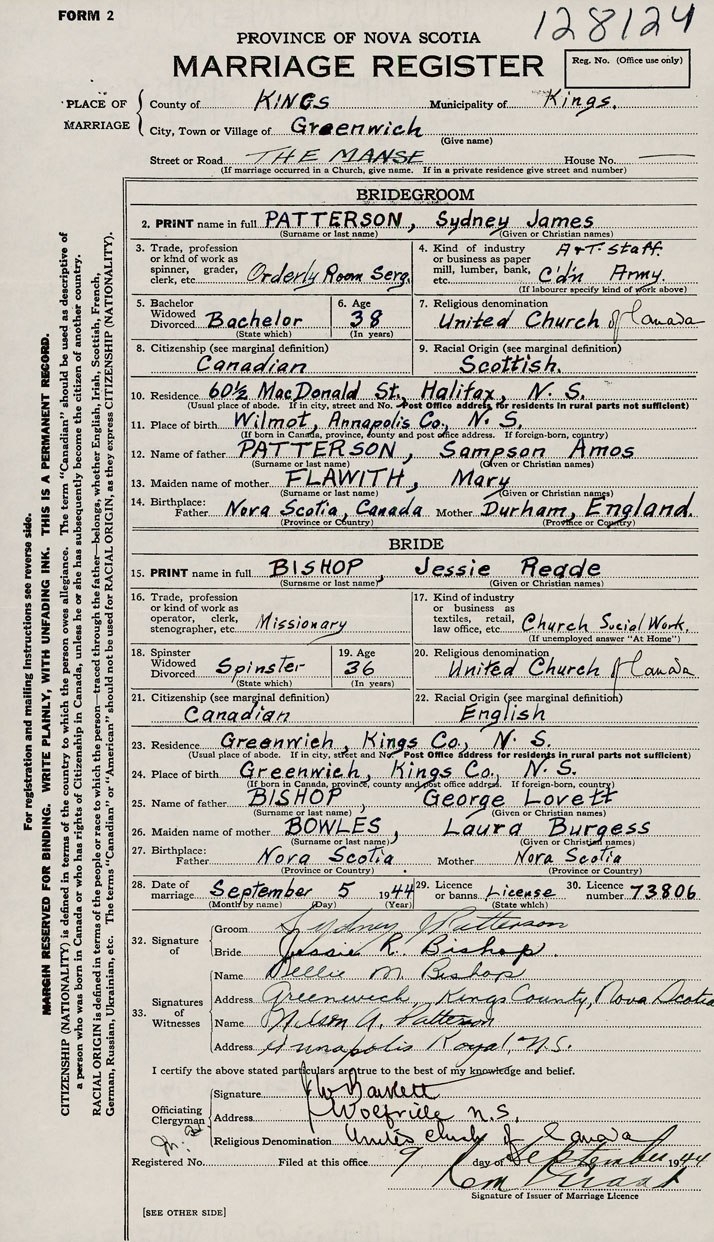 FORM 2
128124
PROVINCE OF NOVA SCOTIA
MARRIAGE REGISTER
Reg. No. (Office use only)
PLACE OF MARRIAGE
County of KINGS Municipality of Kings.
City, Town or Village of Greenwich
(Give name)
Street or Road THE MANSE House No. —
(If marriage occurred in a Church, give name. If in a private residence give street and number)
BRIDEGROOM
2. PRINT name in full PATTERSON, Sydney James
(Surname or last name) (Given or Christian names)
3. Trade, profession or kind of work as spinner, grader, clerk, etc. Orderly Room Serg.
4. Kind of industry or business as paper mill, lumber, bank, etc. A+T. Staff. C'd'n Army.
(If labourer specify kind of work above)
5. Bachelor Widowed Divorced Bachelor
(State which)
6. Age 38
(In years)
7. Religious denomination United Church of Canada
8. Citizenship (see marginal definition) Canadian
9. Racial Origin (see marginal definition) Scottish.
10. Residence 60½ MacDonald St., Halifax, N. S.
(Usual place of abode. If in city, street and No. Post Office address for residents in rural parts not sufficient)
11. Place of birth Wilmot, Annapolis Co., N. S.
(If born in Canada, province, county and post office address. If foreign-born, country)
12. Name of father PATTERSON, Sampson Amos
(Surname or last name) (Given or Christian names)
13. Maiden name of mother FLAWITH, Mary
(Surname or last name) (Given or Christian names)
14. Birthplace: Father Nova Scotia, Canada Mother Durham, England.
(Province or Country) (Province or Country)
BRIDE
15. PRINT name in full BISHOP, Jessie Reade
(Surname or last name) (Given or Christian names)
16. Trade, profession or kind of work as operator, clerk, stenographer, etc. Missionary
17. Kind of industry or business as textiles, retail, law office, etc. Church Social Work.
(If unemployed answer "At Home")
18. Spinster Widowed Divorced Spinster
(State which)
19. Age 36
(In years)
20. Religious denomination United Church of Canada
21. Citizenship (see marginal definition) Canadian
22. Racial Origin (see marginal definition) English
23. Residence Greenwich, Kings Co., N. S.
(Usual place of abode. If in city, street and No. Post Office address for residents in rural parts not sufficient)
24. Place of birth Greenwich, Kings Co., N. S.
(If born in Canada, province, county and post office address. If foreign-born, country)
25. Name of father BISHOP, George Lovett
(Surname or last name) (Given or Christian names)
26. Maiden name of mother BOWLES, Laura Burgess
(Surname or last name) (Given or Christian names)
27. Birthplace: Father Nova Scotia Mother Nova Scotia
(Province or Country) (Province or Country)
28. Date of marriage September 5 1944
(Month by name) (Day) (Year)
29. Licence or banns License
(State which)
30. Licence number 73806
32. Signature of
Groom Sydney J Patterson
Bride Jessie R. Bishop.
33. Signatures of Witnesses
Name Nellie M Bishop
Address Greenwich, Kings County, Nova Scotia
Name Nilson A. Patterson
Address Annapolis Royal, N.S.
I certify the above stated particulars are true to the best of my knowledge and belief.
Officiating Clergyman
Signature
Address Wolfville N.S.
Religious Denomination United Church of Canada
Registered No. Filed at this office 9 day of September 1944
Signature of Issuer of Marriage Licence
[SEE OTHER SIDE]
For registration and mailing instructions see reverse side.
MARGIN RESERVED FOR BINDING. WRITE PLAINLY, WITH UNFADING INK. THIS IS A PERMANENT RECORD.
CITIZENSHIP (NATIONALITY) is defined in terms of the country to which the person owes allegiance. The term "Canadian" should be used as descriptive of
a person who was born in Canada or who has rights of Citizenship in Canada, unless he or she has subsequently become the citizen of another country.
RACIAL ORIGIN is defined in terms of the people or race to which the person—traced through the father—belongs, whether English, Irish, Scottish, French,
German, Russian, Ukrainian, etc. The terms "Canadian" or "American" should not be used for RACIAL ORIGIN, as they express CITIZENSHIP (NATIONALITY).